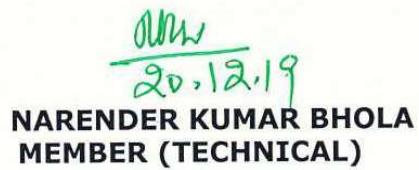 20.12.19
NARENDER KUMAR BHOLA
MEMBER (TECHNICAL)